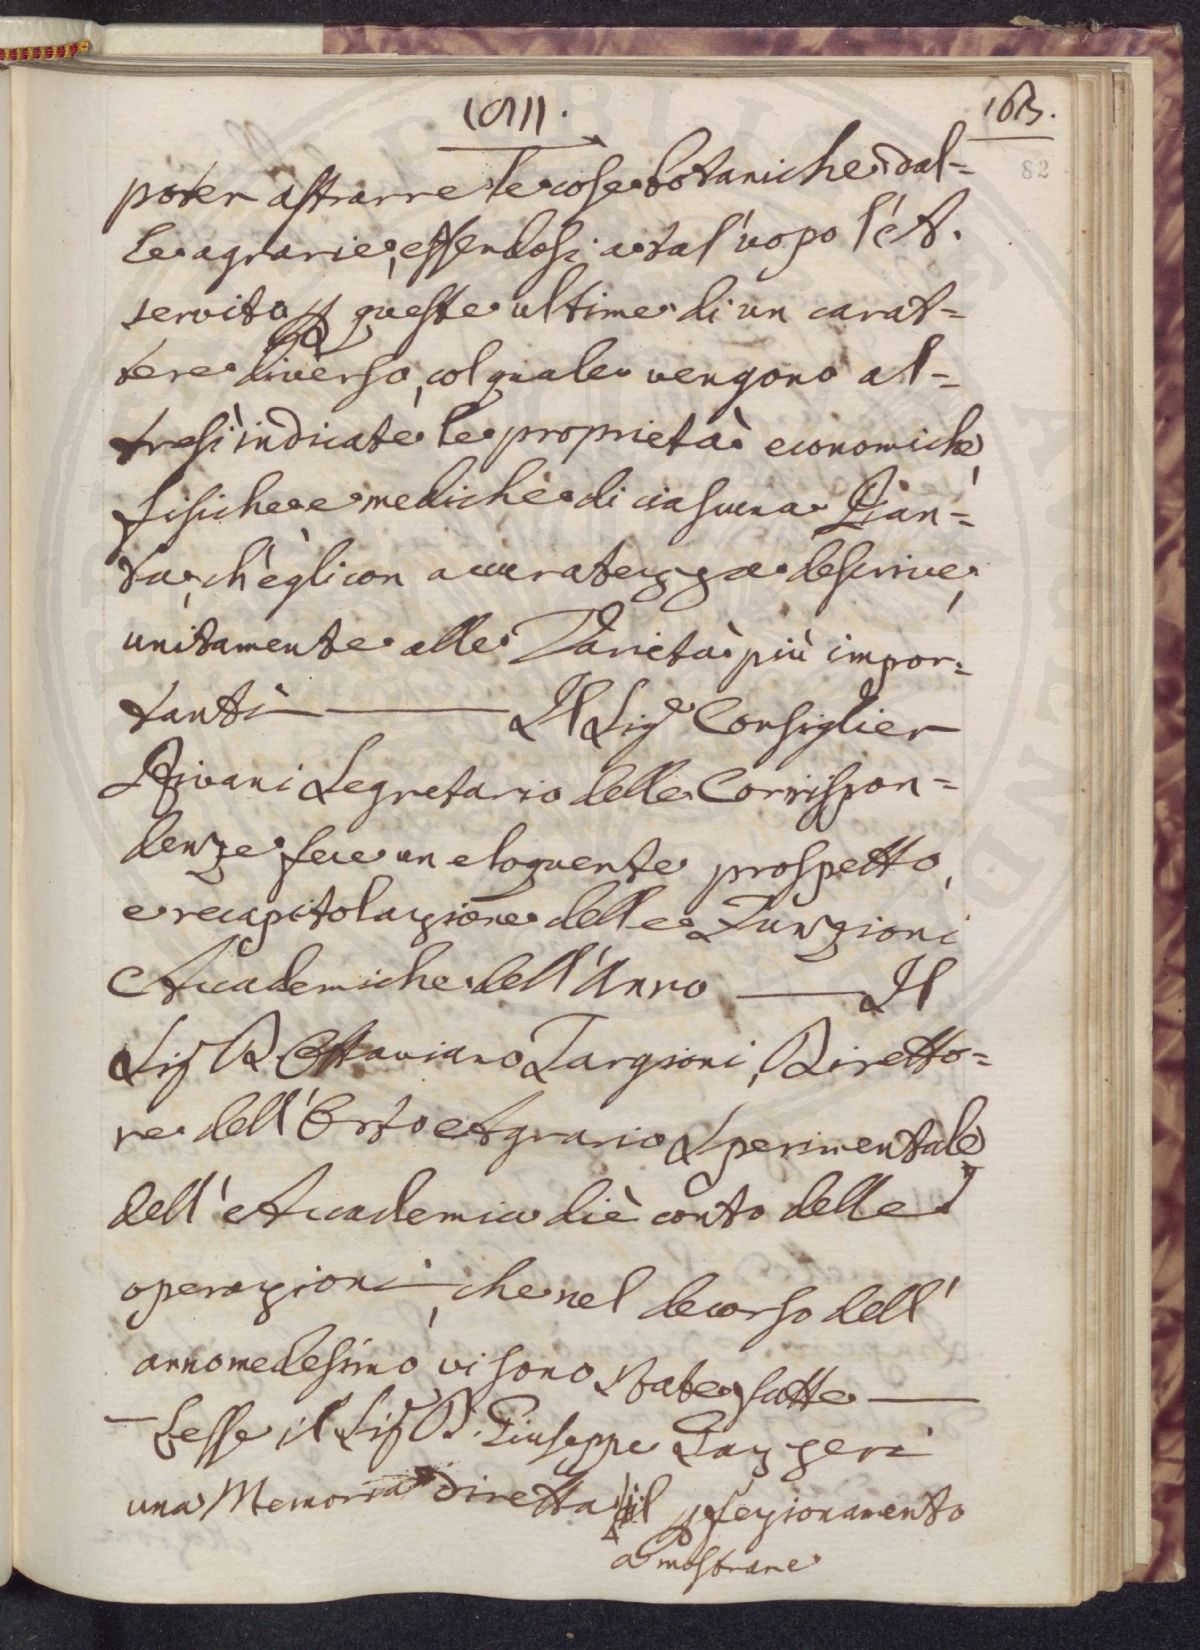 1811. 163.
82
poter astrarre le cose botaniche dal=
le agrarie, essendosi a tal'uopo l'A.
servito p queste ultime di un carat=
tere diverso, col quale vengono al=
tresì indicate le proprietà economiche,
fisiche e mediche di ciascuna Pian=
ta, ch'egli con accuratezza descrive,
unitamente alle Varietà più impor=
tanti — Il Sigr Consiglier
Rivani Segretario delle Corrispon=
denze fece un eloquente prospetto,
e recapitolazione delle Funzioni
Accademiche dell'Anno — Il
Sig D Ottaviano Targioni, Diretto=
re dell'Orto Agrario Sperimentale
dell'Accademia diè conto delle
operazioni, che nel decorso dell'
anno medesimo vi sono state fatte —
— Lesse il Sig D. Giuseppe Gazzeri
una Memoria diretta il pfezionamento
a mostrare